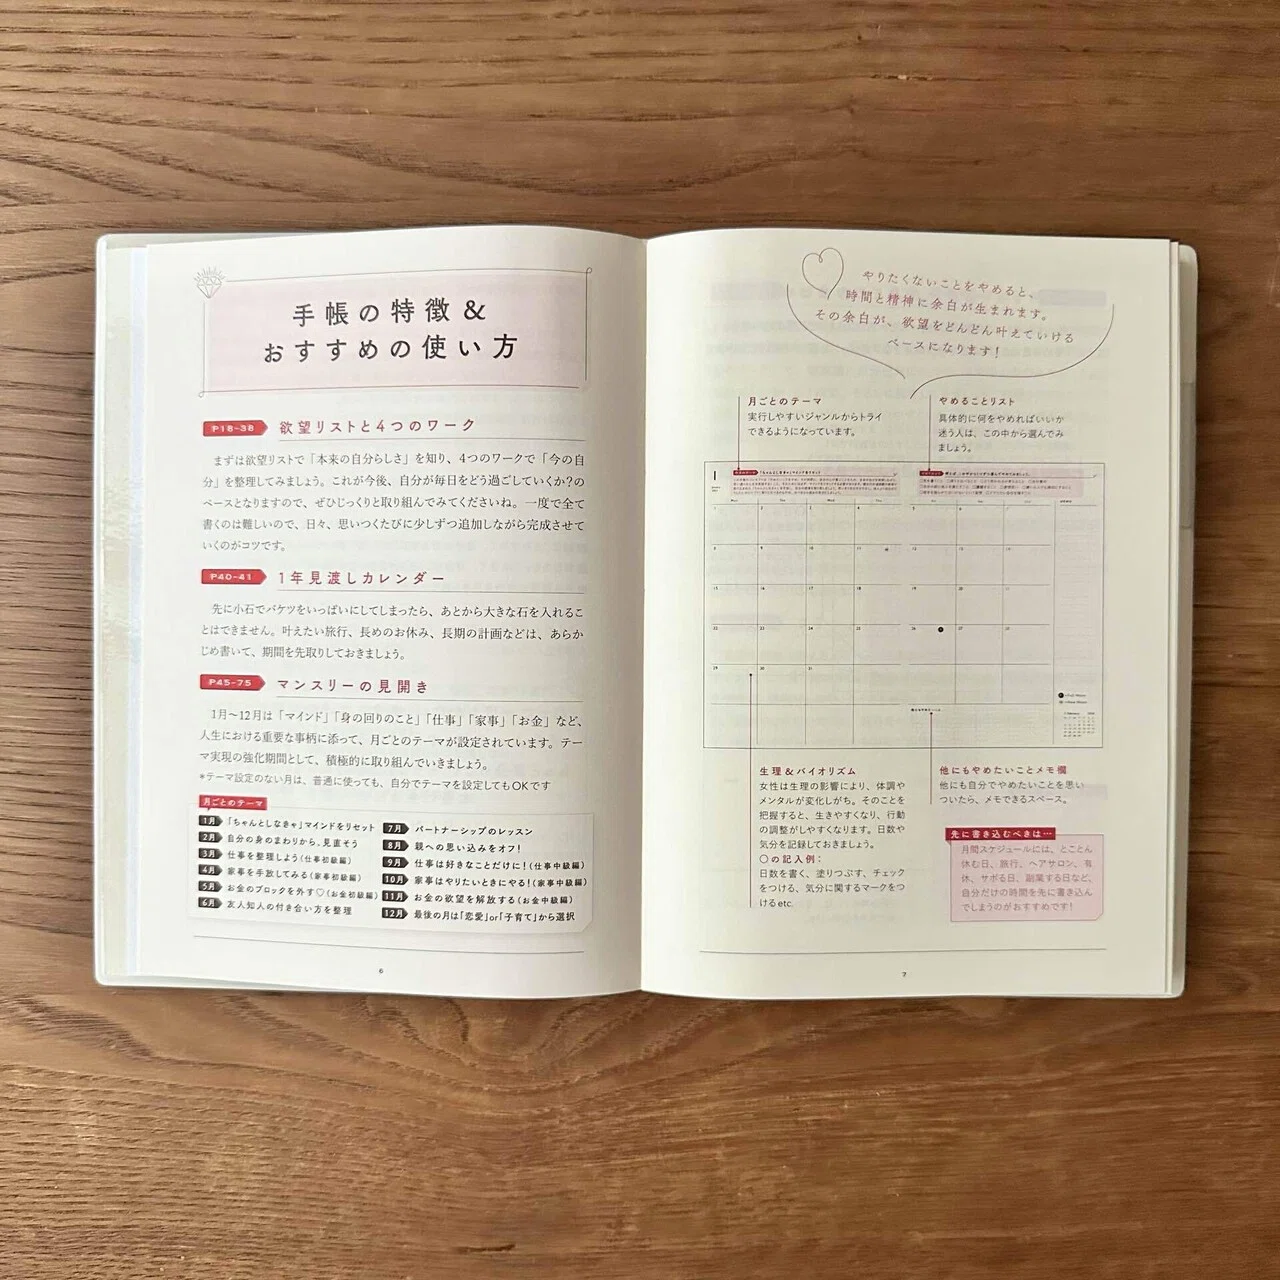 手帳の特徴＆
おすすめの使い方
P18-38 欲望リストと4つのワーク
まずは欲望リストで「本来の自分らしさ」を知り、4つのワークで「今の自
分」を整理してみましょう。これが今後、自分が毎日をどう過ごしていくか?の
ベースとなりますので、ぜひじっくりと取り組んでみてくださいね。一度で全て
書くのは難しいので、日々、思いつくたびに少しずつ追加しながら完成させて
いくのがコツです。
P40-41 1年見渡しカレンダー
先に小石でバケツをいっぱいにしてしまったら、あとから大きな石を入れるこ
とはできません。叶えたい旅行、長めのお休み、長期の計画などは、あらか
じめ書いて、期間を先取りしておきましょう。
P45-75 マンスリーの見開き
1月〜12月は「マインド」「身の回りのこと」「仕事」「家事」「お金」など、
人生における重要な事柄に添って、月ごとのテーマが設定されています。テー
マ実現の強化期間として、積極的に取り組んでいきましょう。
*テーマ設定のない月は、普通に使っても、自分でテーマを設定してもOKです
月ごとのテーマ
1月 「ちゃんとしなきゃ」マインドをリセット
2月 自分の身のまわりから、見直そう
3月 仕事を整理しよう(仕事初級編)
4月 家事を手放してみる(家事初級編)
5月 お金のブロックを外す♡(お金初級編)
6月 友人知人の付き合い方を整理
7月 パートナーシップのレッスン
8月 親への思い込みをオフ!
9月 仕事は好きなことだけに!(仕事中級編)
10月 家事はやりたいときにやる!(家事中級編)
11月 お金の欲望を解放する(お金中級編)
12月 最後の月は「恋愛」or「子育て」から選択
6
やりたくないことをやめると、
時間と精神に余白が生まれます。
その余白が、欲望をどんどん叶えていける
ベースになります!
月ごとのテーマ
実行しやすいジャンルからトライ
できるようになっています。
やめることリスト
具体的に何をやめればいいか
迷う人は、この中から選んでみ
ましょう。
1
生理＆バイオリズム
女性は生理の影響により、体調や
メンタルが変化しがち。そのことを
把握すると、生きやすくなり、行動
の調整がしやすくなります。日数や
気分を記録しておきましょう。
〇の記入例：
日数を書く、塗りつぶす、チェック
をつける、気分に関するマークをつ
けるetc.
他にもやめたいことメモ欄
他にも自分でやめたいことを思い
ついたら、メモできるスペース。
先に書き込むべきは…
月間スケジュールには、とことん
休む日、旅行、ヘアサロン、有
休、サボる日、副業する日など、
自分だけの時間を先に書き込ん
でしまうのがおすすめです!
7